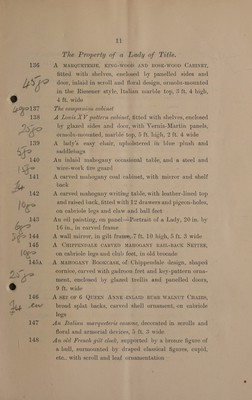 11
The Property of a Lady of Title.
136 A MARQUETERIE, KING-WOOD AND ROSE-WOOD CABINET,
fitted with shelves, enclosed by panelled sides and
door, inlaid in scroll and floral design, ormolu-mounted
in the Riesener style, Italian marble top, 3 ft. 4 high,
4 ft. wide
137 The companion cabinet
138 A Louis XV pattern cabinet, fitted with shelves, enclosed
by glazed sides and door, with Vernis-Martin panels,
ormolu-mounted, marble top, 5 ft. high, 2 ft. 4 wide
139 A lady's easy chair, upholstered in blue plush and
saddlebags
140 An inlaid mahogany occasional table, and a steel and
wire-work fire guard
141 A carved mahogany coal cabinet, with mirror and shelf
back
142 A carved mahogany writing table, with leather-lined top
and raised back, fitted with 12 drawers and pigeon-holes,
on cabriole legs and claw and ball feet
143 An oil painting, on panel—Portrait of a Lady, 20 in. by
16 in., in carved frame
144 A wall mirror, in gilt frame, 7 ft. 10 high, 5 ft. 3 wide
145 A CHIPPENDALE CARVED MAHOGANY RAIL-BACK SETTEE,
on cabriole legs and club feet, in old brocade
145A A MAHOGANY BOOKCASE, of Chippendale design, shaped
cornice, carved with gadroon feet and key-pattern orna-
ment, enclosed by glazed trellis and panelled doors,
9 ft. wide
146 A SET OF 6 QUEEN ANNE INLAID BURR WALNUT CHAIRS,
broad splat backs, carved shell ornament, on cabriole
legs
147 An Italian marqueterie commode, decorated in scrolls and
floral and armorial devices, 5 ft. 3 wide
148 An old French gilt clock, supported by a bronze figure of
a bull, surmounted by draped classical figures, cupid,
etc., with scroll and leaf ornamentation